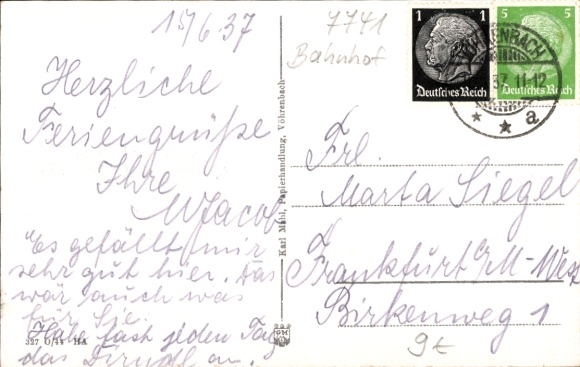 15/6 37
Herzliche
Feriengrüße
Ihre
WJacob
Es gefällt mir
sehr gut hier. Das
wär auch was
für Sie.
Habe fast jeden Tag
das Dirndl an.
327 O/44 HA
Karl Mühl, Papierhandlung, Vöhrenbach
7741
Bahnhof
1 1
Deutsches Reich
5 5
Deutsches Reich
VÖHRENBACH
37. 11-12
* * a
Frl.
Marta Siegel
Frankfurt a/M-West
Birkenweg 1